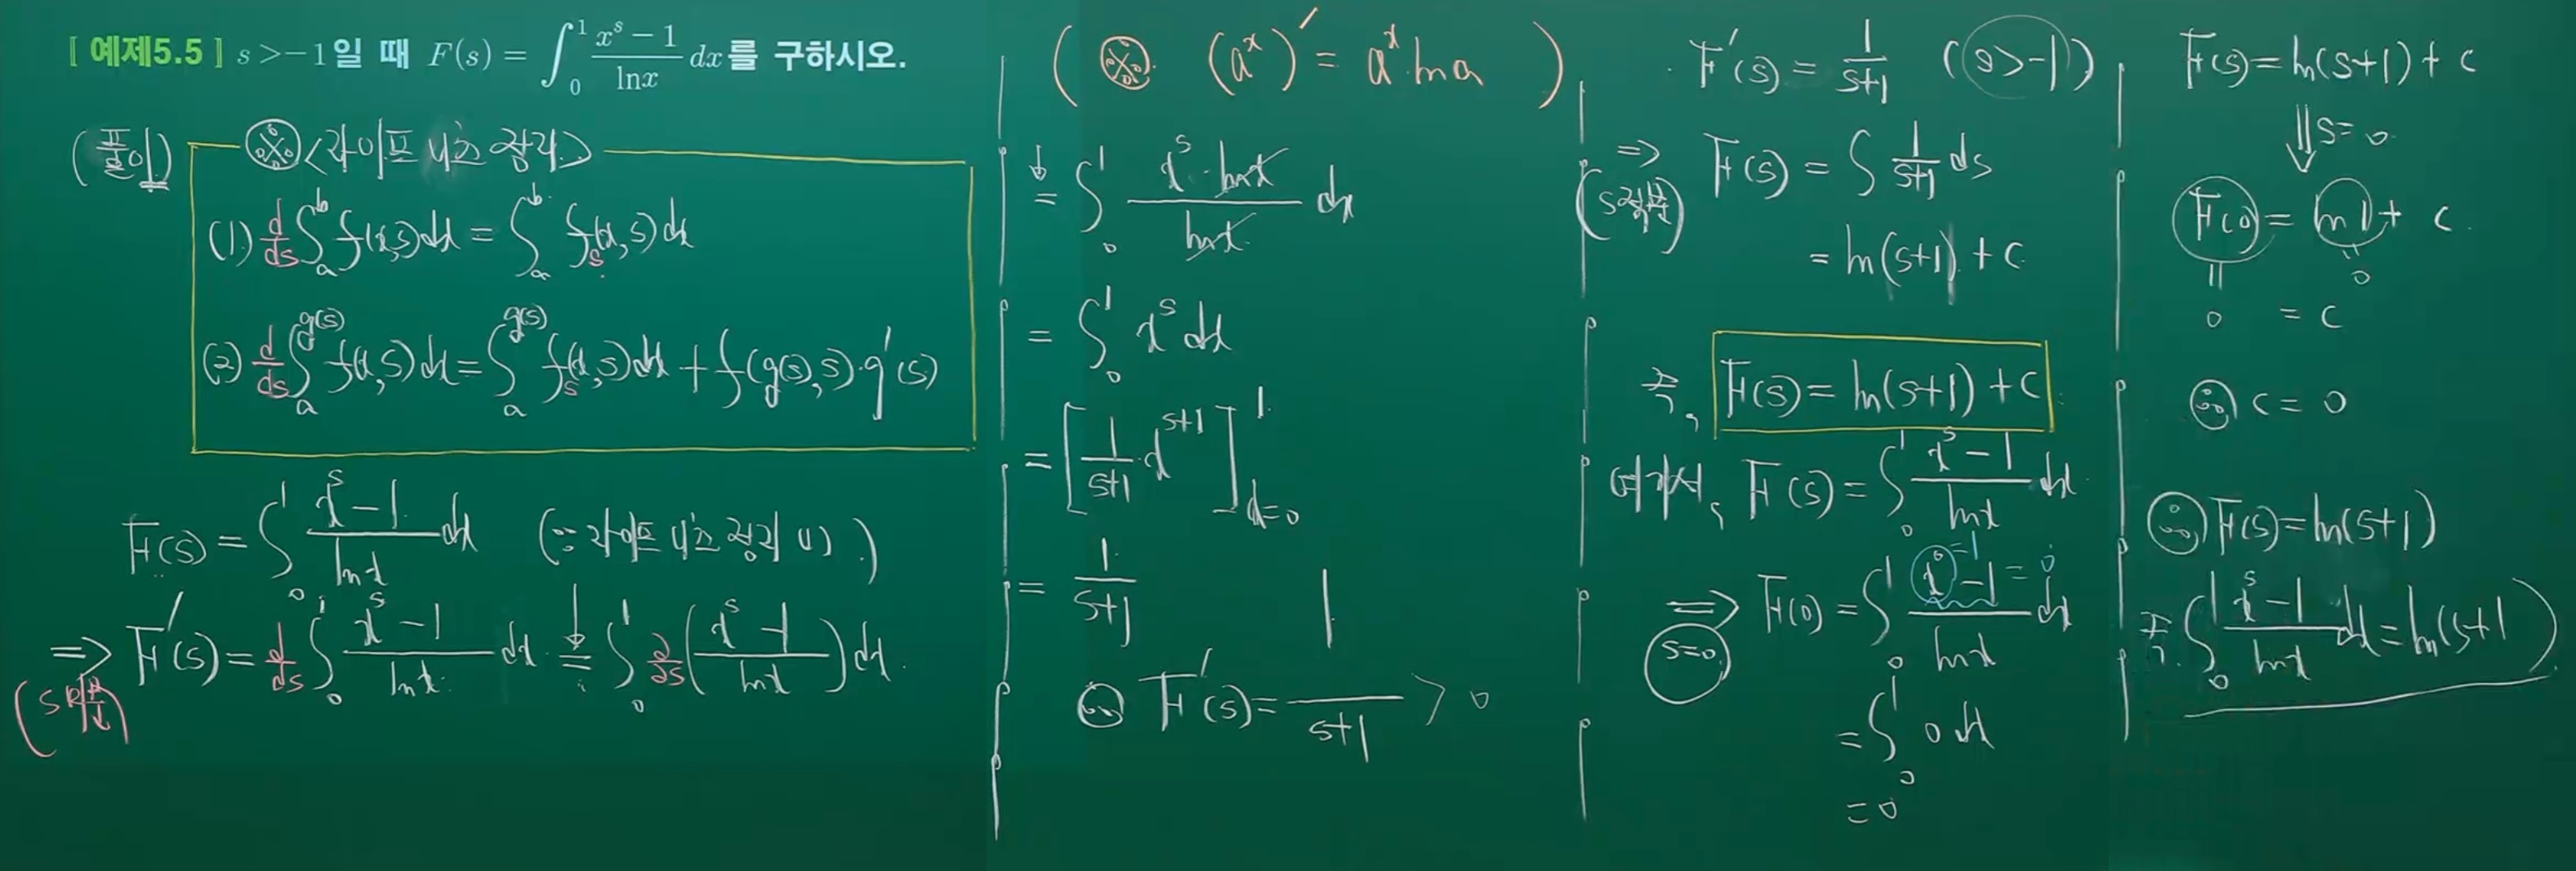 [ 예제5.5 ] s > -1일 때 F(s) = ∫₀¹ (x^s - 1)/(lnx) dx를 구하시오.
(풀이)
※ <라이프니츠 정리>
(1) d/ds ∫_a^b f(x,s)dx = ∫_a^b f_s(x,s)dx
(2) d/ds ∫_a^{g(s)} f(x,s)dx = ∫_a^{g(s)} f_s(x,s)dx + f(g(s),s)·g'(s)
F(s) = ∫₀¹ (x^s - 1)/(lnx) dx (∵ 라이프니츠 정리 (1))
⇒ F'(s) = d/ds ∫₀¹ (x^s - 1)/(lnx) dx = ∫₀¹ ∂/∂s((x^s - 1)/(lnx))dx.
(s미분)
(※ (a^x)' = a^x·ln a)
↓
= ∫₀¹ (x^s·lnx)/(lnx) dx
= ∫₀¹ x^s dx
= [1/(s+1) x^{s+1}]_{x=0}^1
= 1/(s+1)
∴ F'(s) = 1/(s+1) > 0
F'(s) = 1/(s+1) (s>-1)
⇒ F(s) = ∫ 1/(s+1) ds
(s적분)
= ln(s+1) + c
즉, F(s) = ln(s+1) + c
여기서, F(s) = ∫₀¹ (x^s - 1)/(lnx) dx
⇒ F(0) = ∫₀¹ (x^0 - 1)/(lnx) dx
=1
= 0
s=0
= ∫₀¹ 0 dx
= 0
F(s) = ln(s+1) + c
⇓ s=0
F(0) = ln 1 + c
|| ||
0
0 = c
∴ c = 0
∴ F(s) = ln(s+1)
즉. ∫₀¹ (x^s - 1)/(lnx) dx = ln(s+1)